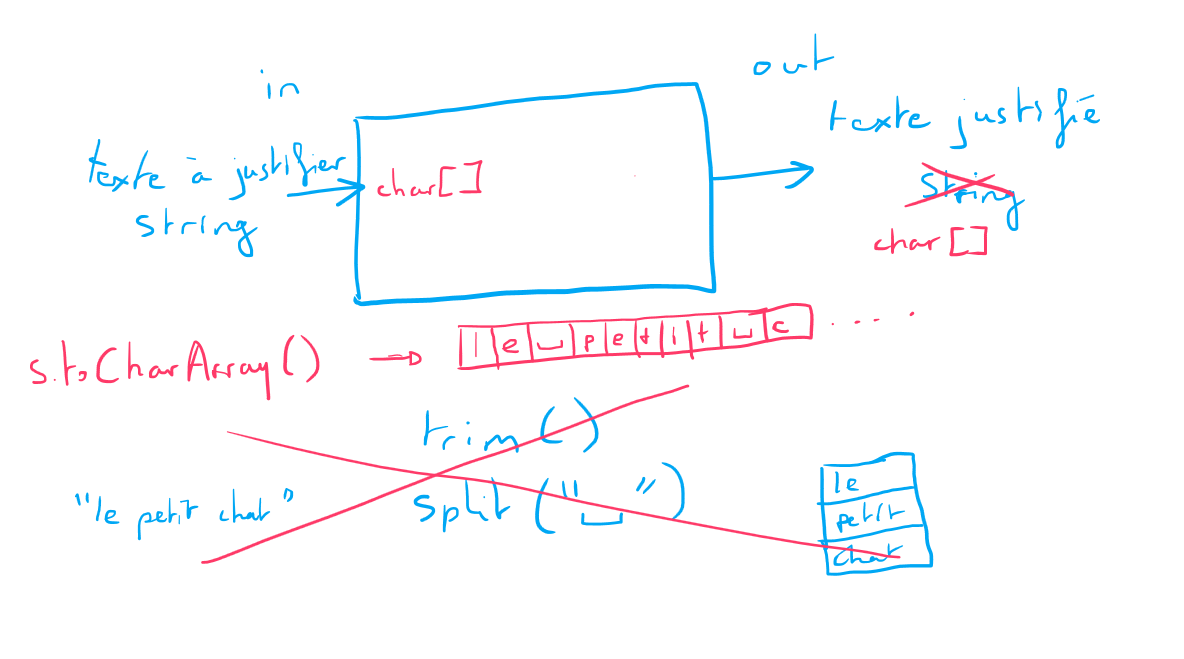 in
out
texte à justifier
string
char[]
texte justifié
string
char[]
s.toCharArray()
le␣petit␣c....
trim()
"le petit chat"
split("␣")
le
petit
chat